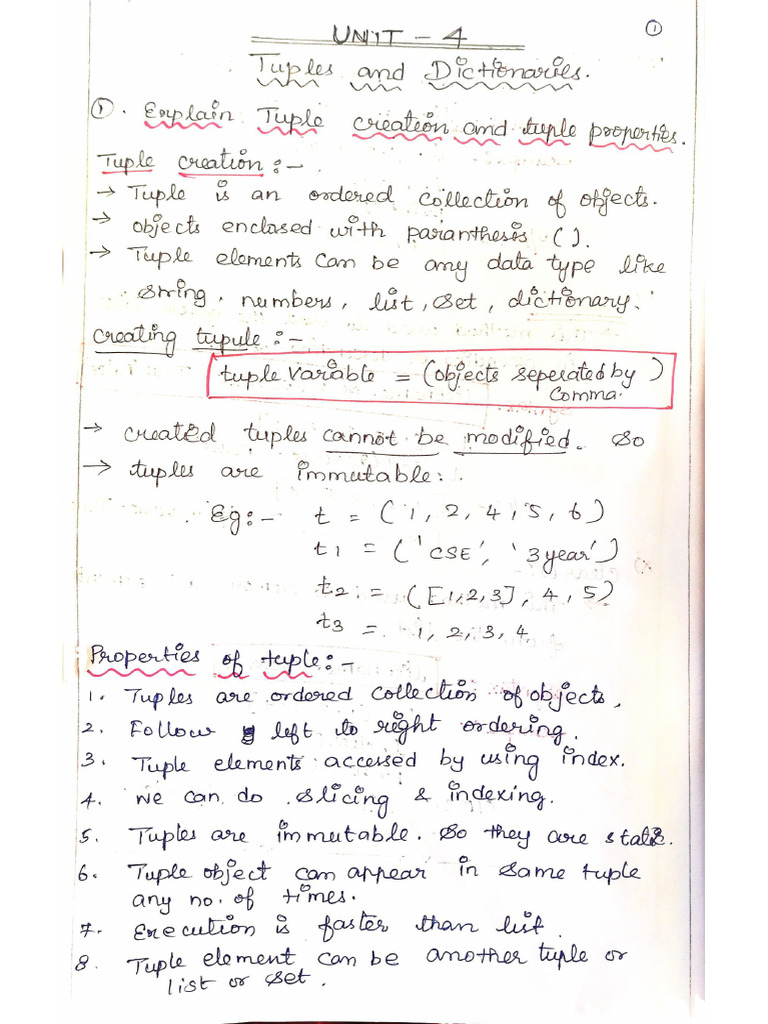 1
UNIT - 4
Tuples and Dictionaries.
1. Explain Tuple creation and tuple properties.
Tuple creation:-
→ Tuple is an ordered collection of objects.
→ objects enclosed with paranthesis ().
→ Tuple elements can be any data type like
string, numbers, list, set, dictionary.
creating tupule:-
tuple variable = (objects seperated by )
comma.
→ created tuples cannot be modified. so
→ tuples are immutable:.
Eg:- t = (1, 2, 4, 5, 6)
t1 = ('CSE', '3year')
t2 = ([1,2,3], 4, 5)
t3 = 1, 2, 3, 4
Properties of tuple:-
1. Tuples are ordered collection of objects,
2. Follow left to right ordering.
3. Tuple elements accessed by using index.
4. we can do slicing & indexing.
5. Tuples are immutable. so they are static.
6. Tuple object can appear in same tuple
any no. of times.
7. Execution is faster than list.
8. Tuple element can be another tuple or
list or set.